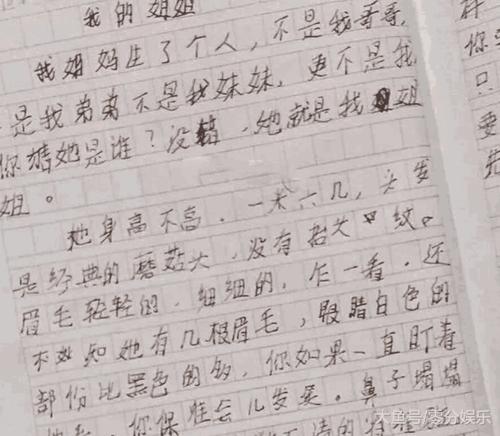 我的姐姐
我妈妈生了个人，不是我哥哥，
是我弟弟不是我妹妹，更不是我
你猜她是谁？没错，她就是我姐
姐。
她身高不高，一米六几，头发
是经典的蘑菇头，没有抬头纹。
眉毛轻轻的，细细的，乍一看，还
不知她有几根眉毛，眼睛白色的
部份比黑色的多，你如果一直盯着
你保准会儿发笑。鼻子塌塌
的
你
只
要
大鱼号/枣分娱乐